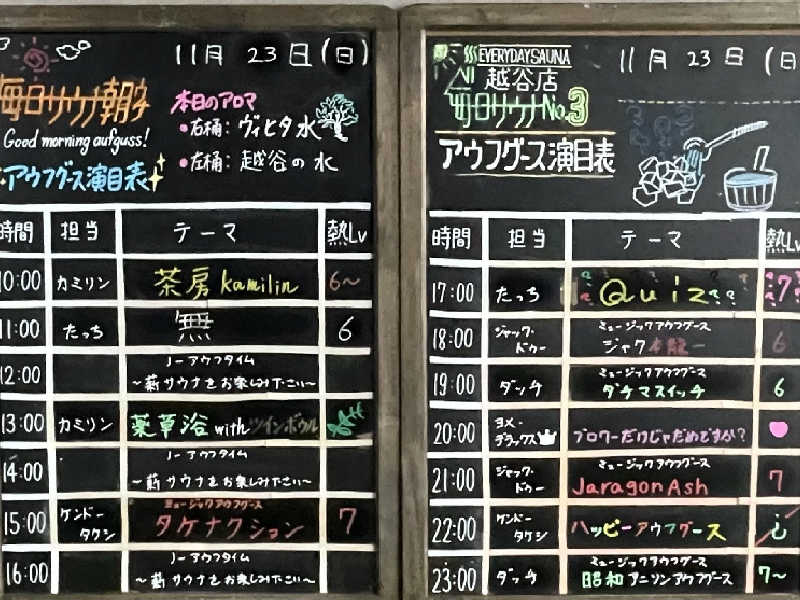 11月 23日(日)
毎日サウナ朝
Good morning aufguss!
アウフグース演目表
本日のアロマ
●右桶: ヴィヒタ水
●左桶: 越谷の水
時間 担当 テーマ 熱Lv
10:00 カミリン 茶房 kamilin 6~
11:00 たっち 無 6
12:00 ノーアウフタイム
~薪サウナをお楽しみ下さい~
13:00 カミリン 薬草浴 with ツインボウル
14:00 ノーアウフタイム
~薪サウナをお楽しみ下さい~
15:00 ケンドータケシ ミュージックアウフグース
タケナクション 7
16:00 ノーアウフタイム
~薪サウナをお楽しみ下さい~
EVERYDAYSAUNA
越谷店
毎日サウナNo.3
11月 23日(日
アウフグース演目表
時間 担当 テーマ 熱Lv
17:00 たっち Quiz 7
18:00 ジャック・ドゥー ミュージックアウフグース
ジャク本龍一 6
19:00 ダッチ ミュージックアウフグース
ダチマスイッチ 6
20:00 ヨメ・デラックス ブロワーだけじゃだめですか?
21:00 ジャック・ドゥー ミュージックアウフグース
JaragonAsh 7
22:00 ケンドータケシ ハッピーアウフグース
23:00 ダッチ ミュージックアウフグース
昭和アニソンアウフグース 7~